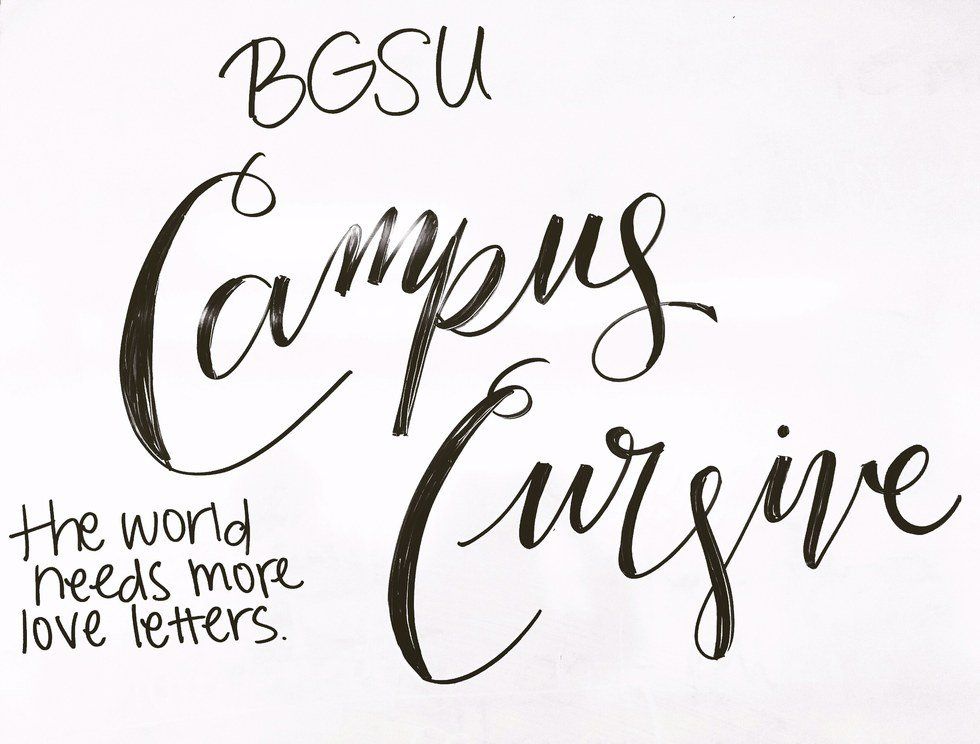 BGSU
Campus
Cursive
the world
needs more
love letters.